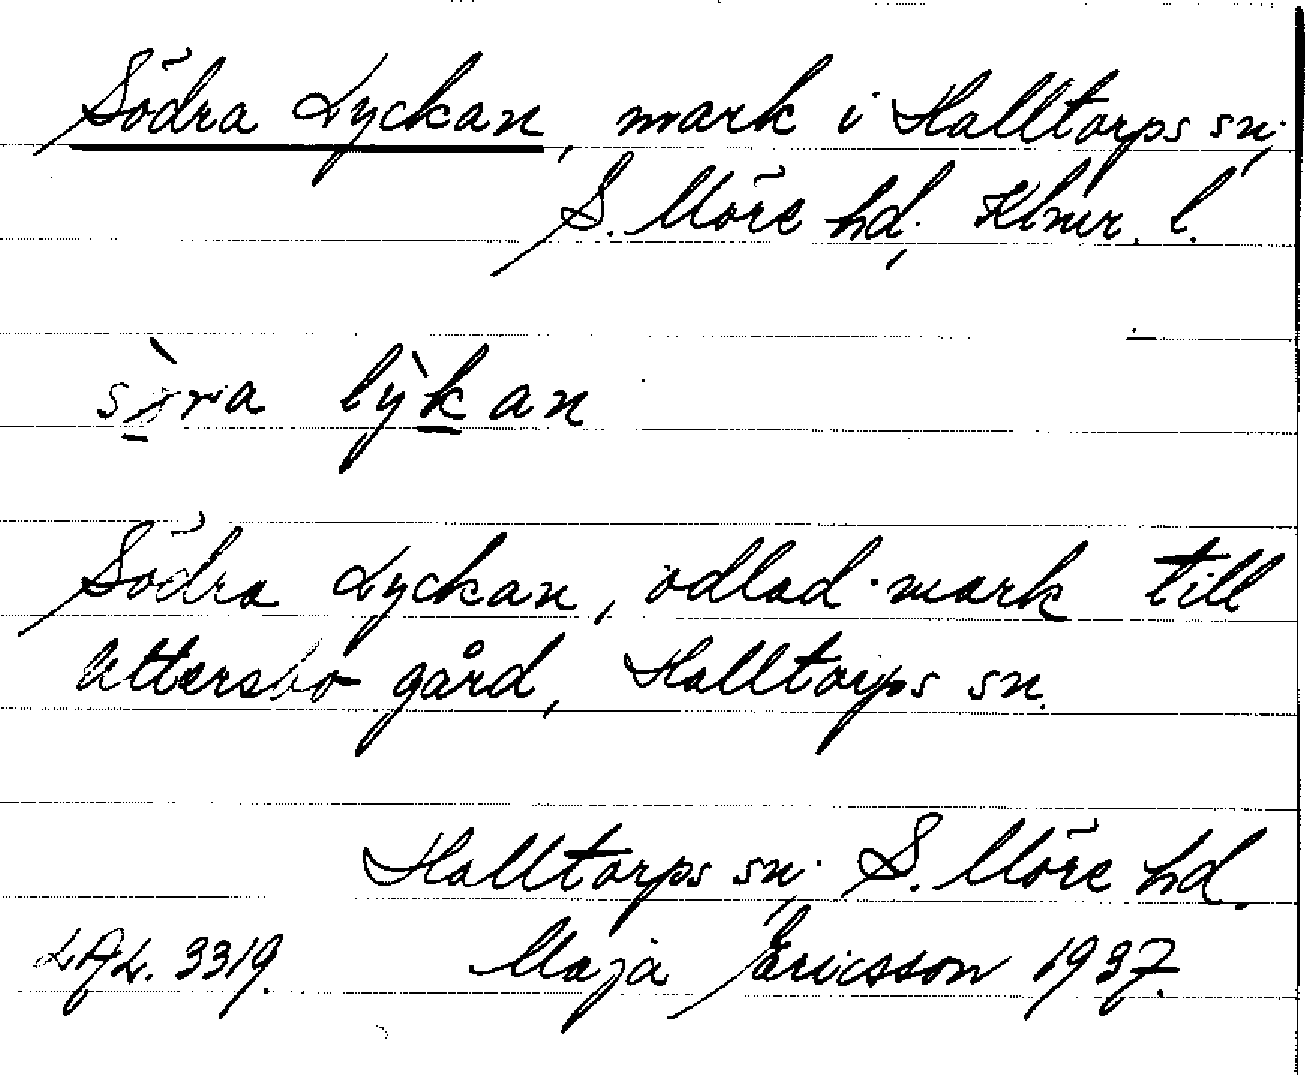 Södra Lyckan, mark i Halltorps sn;
S. Möre hd; Klmr. l.
lỳkan
Södra Lyckan, odlad mark till
Uttersbo gård, Halltorps sn.
Halltorps sn; S. Möre hd.
LAL. 3319. Maja Ericsson 1937.